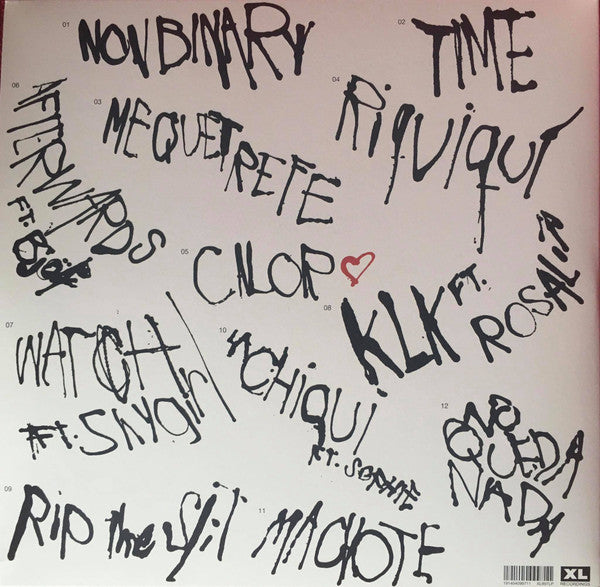 01 NONBINARY
02 TIME
03 MEQUETREFE
04 RiquiquÍ
05 CALOR
06 AFTERWARDS FT. Björk
07 WATCH FT. Shygirl
08 KLK FT. ROSALÍA
09 Rip the Slit
10 LA CHIQUI FT. SOPHIE
11 MACHOTE
12 NO QUEDA NADA
XL
RECORDINGS